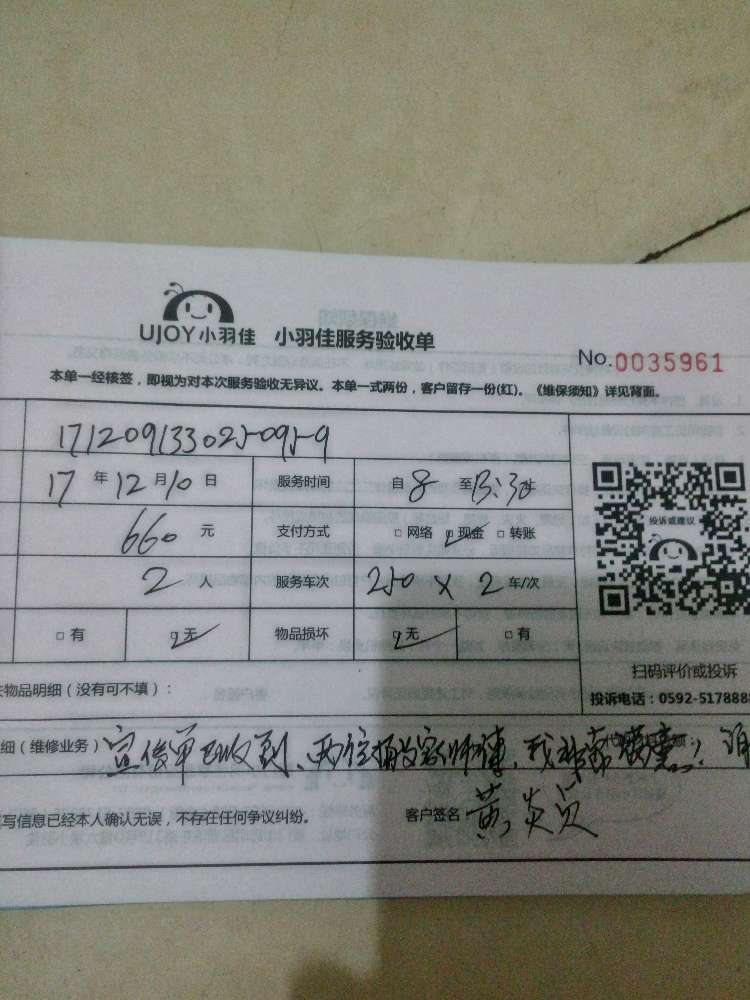 UJOY小羽佳 小羽佳服务验收单
No.0035961
本单一经核签，即视为对本次服务验收无异议。本单一式两份，客户留存一份(红)。《维保须知》详见背面。
17 年 12 月 10 日 服务时间 自 8 至 13:30
660 元 支付方式 □ 网络 □ 现金 □ 转账
2 人 服务车次 250 × 2 车/次
□ 有 □ 无 物品损坏 □ 无 □ 有
投诉或建议
扫码评价或投诉
物品明细（没有可不填）：
投诉电话：0592-517888
细（维修业务）宣传单已收到、两位搬家师傅，我非常满意！
写信息已经本人确认无误，不存在任何争议纠纷。 客户签名 黄炎